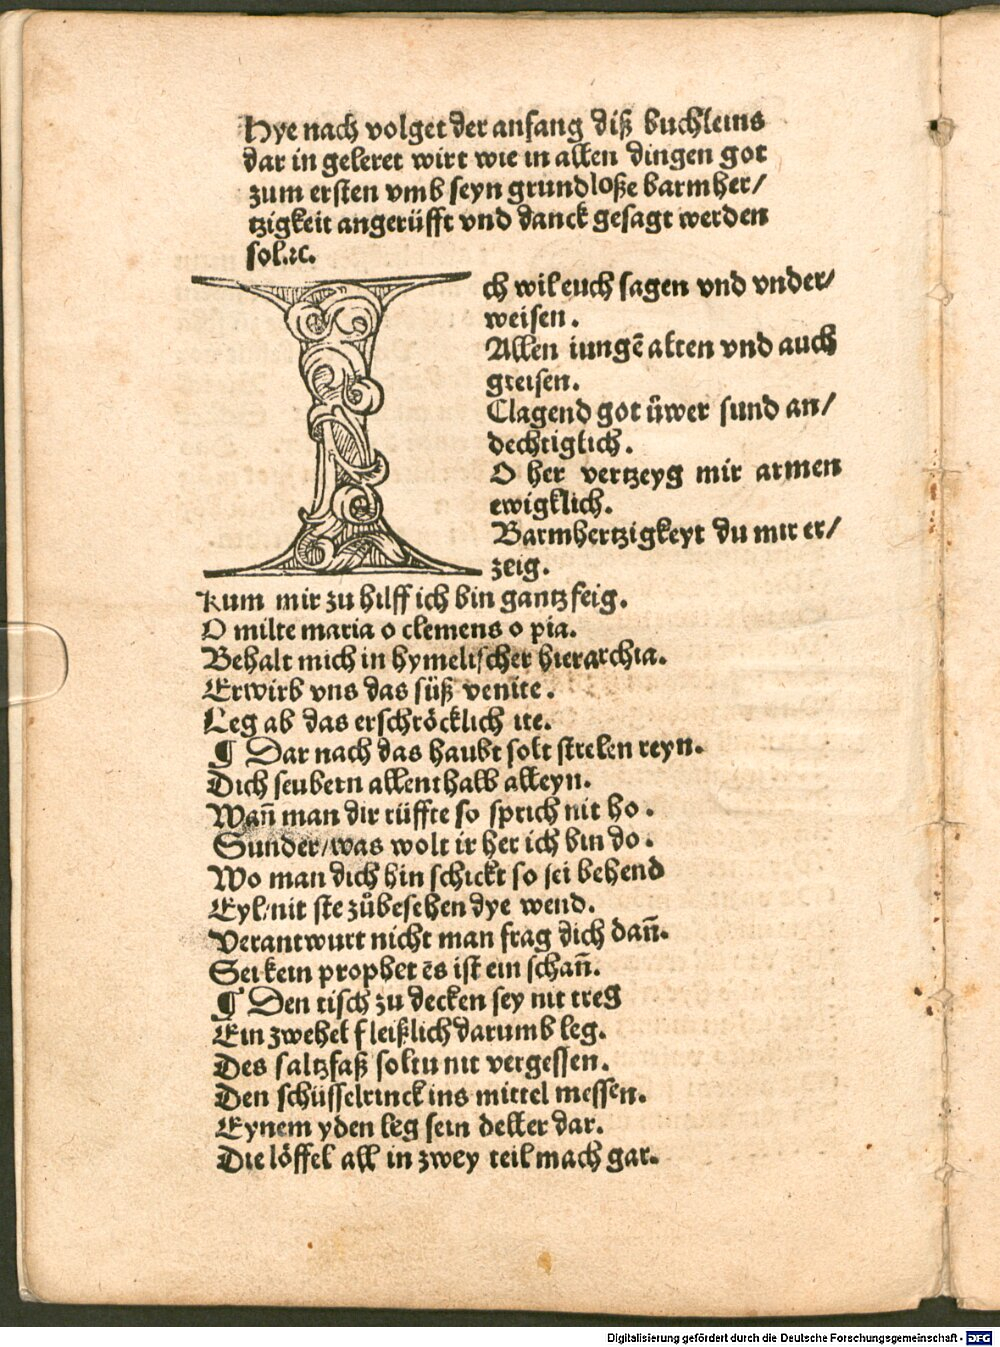 Hye nach volget der anfang diß buchleins
dar in geleret wirt wie in allen dingen got
zum ersten vmb seyn grundloße barmher/
tzigkeit angerüfft vnd danck gesagt werden
sol.ꝛc.
Ich wil euch sagen vnd vnder/
weisen.
Allen iungē alten vnd auch
greisen.
Clagend got üwer sund an/
dechtiglich.
O her vertzeyg mir armen
ewigklich.
Barmhertzigkeyt du mir er/
zeig.
Kum mir zu hilff ich bin gantz feig.
O milte maria o clemens o pia.
Behalt mich in hymelischer hierarchia.
Erwirb vns das süß venite.
Leg ab das erschröcklich ite.
¶ Dar nach das haubt solt strelen reyn.
Dich seubern allenthalb alleyn.
Wañ man dir rüffte so sprich nit ho.
Sunder/was wolt ir her ich bin do.
Wo man dich hin schickt so sei behend
Eyl/nit ste zůbesehen dye wend.
Verantwurt nicht man frag dich dañ.
Sei kein prophet ēs ist ein schañ.
¶ Den tisch zu decken sey nit treg
Ein zwehel fleißlich darumb leg.
Des saltzfaß soltu nit vergessen.
Den schüsselrinck ins mittel messen.
Eynem yden leg sein deller dar.
Die löffel all in zwey teil mach gar.
Digitalisierung gefördert durch die Deutsche Forschungsgemeinschaft - DFG